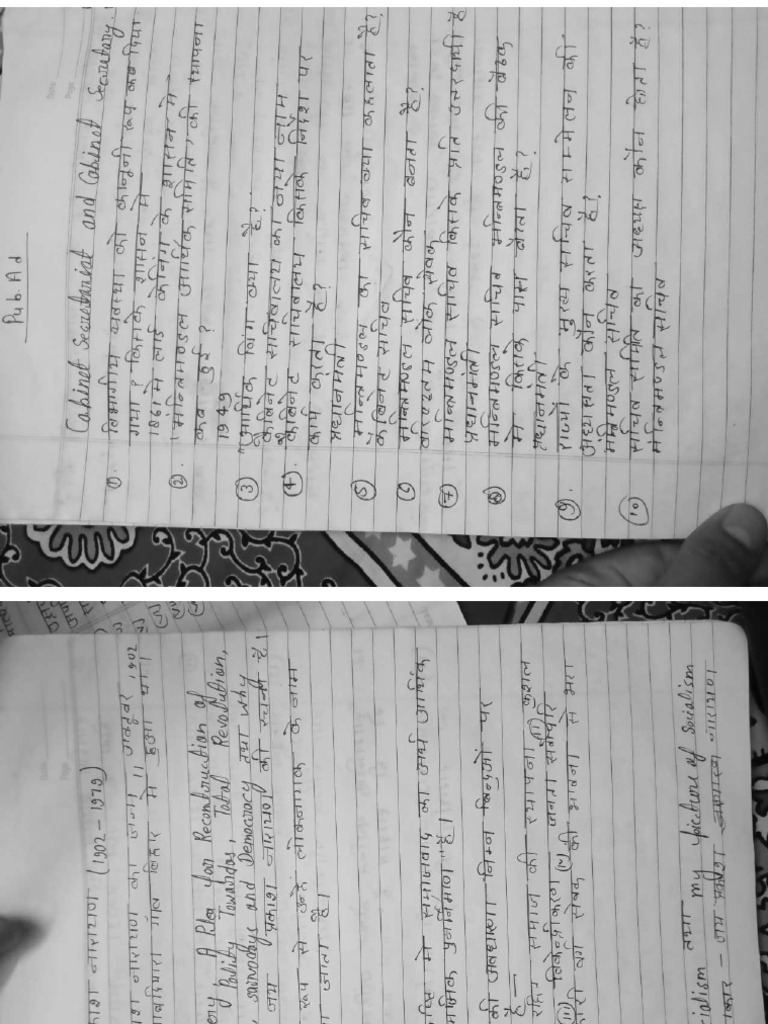 Pub. Ad
Cabinet Secretariat and Cabinet Secretary.
① विभागीय व्यवस्था को कानूनी रूप कब दिया
गया? किसके शासन में
1861 में लार्ड केनिंग के शासन में
② 'मन्त्रिमण्डल आर्थिक समिति' की स्थापना
कब हुई?
1949
③ "आर्थिक विंग क्या है?
कैबिनेट सचिवालय का नया नाम
④. कैबिनेट सचिवालय किसके निर्देश पर
कार्य करता है?
प्रधानमंत्री
⑤ मन्त्रिमण्डल का सचिव क्या कहलाता है?
कैबिनेट सचिव
⑥ मन्त्रिमण्डल सचिव कौन बनता है?
वरिष्ठतम लोक सेवक
⑦ मन्त्रिमण्डल सचिव किसके प्रति उत्तरदायी है
प्रधानमंत्री
⑧ मन्त्रिमण्डल सचिव मन्त्रिमण्डल की बैठक
में किसके पास बैठता है?
प्रधानमंत्री
⑨. राज्यों के मुख्य सचिव सम्मेलन की
अध्यक्षता कौन करता है?
मंत्रिमण्डल सचिव
⑩ सचिव समिति का अध्यक्ष कौन होता है?
मन्त्रिमण्डल सचिव
नारायण (1902-1979)
नारायण का जन्म 11 अक्टूबर 1902
गाँव बिहार में हुआ था।
A Plea for Reconstruction of
Polity, Towards, Total Revolution,
and Democracy तथा Why
जय प्रकाश नारायण की रचना है।
रूप से उन्हें लोकनायक के नाम
जाता है।
में समाजवाद का अर्थ आर्थिक
पुनर्निर्माण है।
की अवधारणा निम्न बिन्दुओं पर
है –
रहित समाज की स्थापना (ii) कुशल
(iii) विकेन्द्रीकरण (iv) जनता
सेवक की भावना से भरा
तथा my picture of Socialism
– जय प्रकाश नारायण